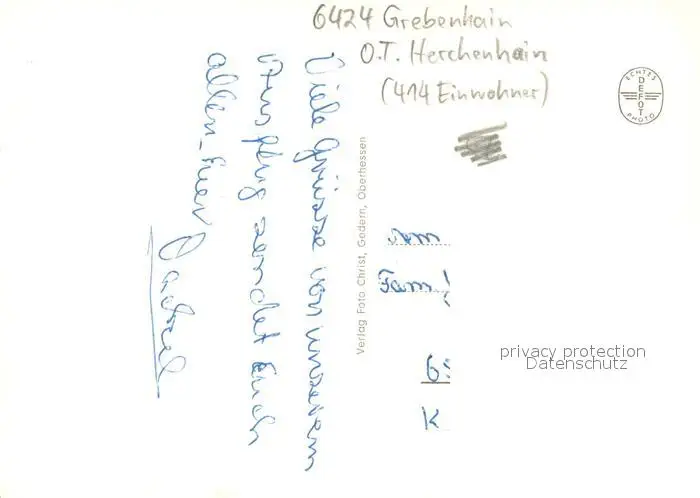 6424 Grebenhain
O.T. Herchenhain
(414 Einwohner)
ECHTES
DEFOT
PHOTO
Viele Grüsse von unserem
Ausflug sendet Euch
allen Euer
Verlag Foto Christ, Gedern, Oberhessen
Fam!
G:
K
privacy protection
Datenschutz